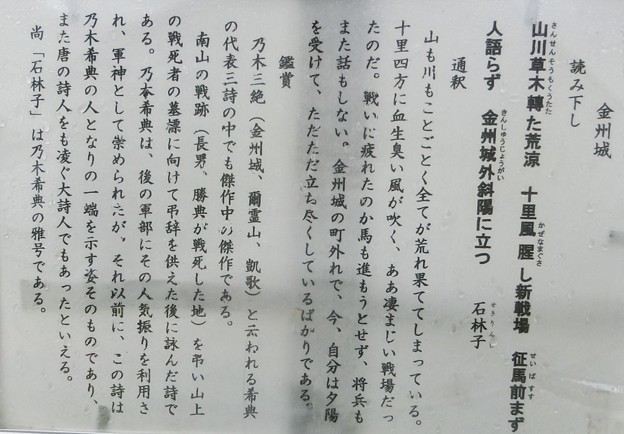 金州城
読み下し
山川草木轉た荒涼　十里風腥し新戦場　征馬前まず
さんせんそうもくうたた
かぜなまぐさ
せいばすす
人語らず　金州城外斜陽に立つ　石林子
きんしゅうじょうがい
せきりんし
通釈
山も川もことごとく全てが荒れ果ててしまっている。
十里四方に血生臭い風が吹く、ああ凄まじい戦場だっ
たのだ。戦いに疲れたのか馬も進もうとせず、将兵も
また話もしない。金州城の町外れで、今、自分は夕陽
を受けて、ただただ立ち尽くしているばかりである。
鑑賞
乃木三絶（金州城、爾霊山、凱歌）と云われる希典
の代表三詩の中でも傑作中の傑作である。
南山の戦跡（長男、勝典が戦死した地）を弔い山上
の戦死者の墓標に向けて弔辞を供えた後に詠んだ詩で
ある。乃木希典は、後の軍部にその人気振りを利用さ
れ、軍神として崇められたが、それ以前に、この詩は
乃木希典の人となりの一端を示す姿そのものであり、
また唐の詩人をも凌ぐ大詩人でもあったといえる。
尚「石林子」は乃木希典の雅号である。